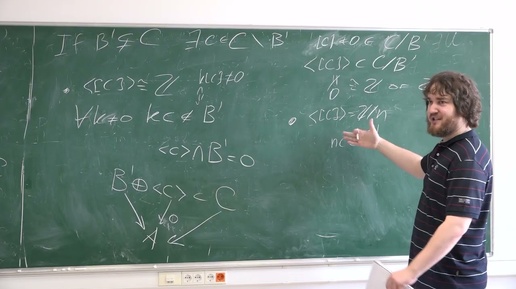 If B' ⊊ C ∃ c ∈ C \ B' [c] ≠ 0 ∈ C/B'
<[c]> ⊂ C/B'
• <[c]> ≅ ℤ k[c] ≠ 0
0 ≅ ℤ
∀ k ≠ 0 kc ∉ B'
• <[c]> = ℤ/n
<c> ∩ B' = 0
B' ⊕ <c> ⊂ C
0
A